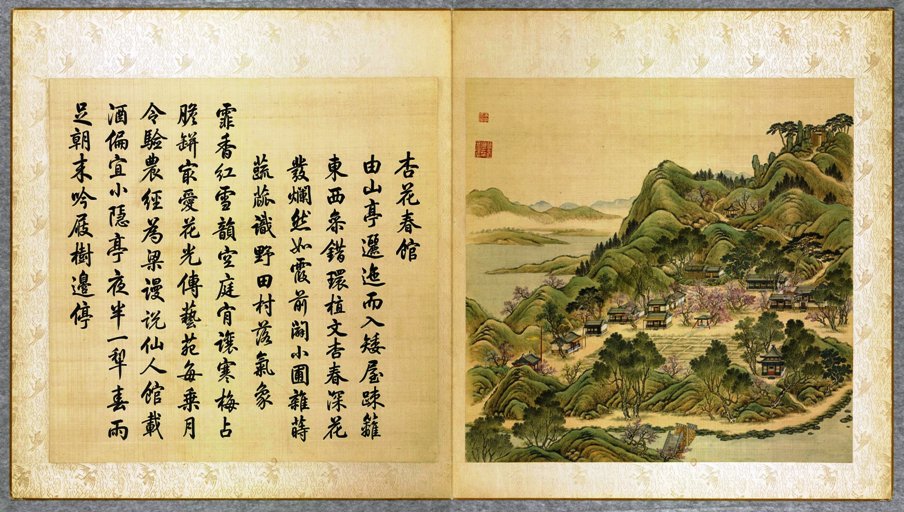 杏花春館
由山亭邐迤而入矮屋疎籬
東西參錯環植文杏春深花
發爛然如霞前闢小圃雜蒔
蔬蓏識野田村落氣象
霏香紅雪韻空庭肎讓寒梅占
膽缾㝡愛花光傳藝苑每乗月
令驗農經為梁謾說仙人館載
酒偏宜小隱亭夜半一犁春雨
足朝來吟屐樹邊停